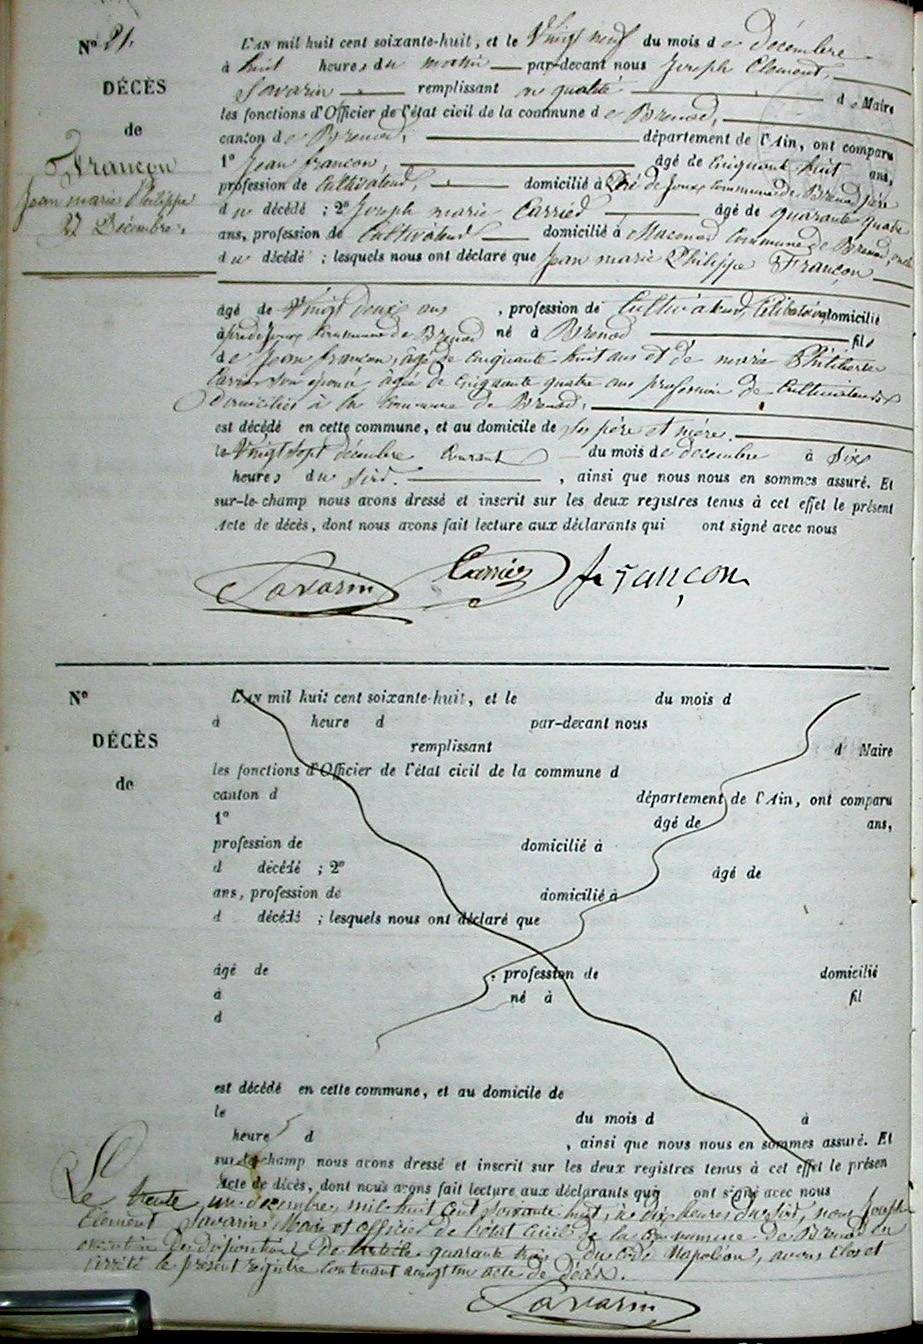 N° 21.
DÉCÈS
de
Françon
Jean marie Philippe
27 Décembre.
L'AN mil huit cent soixante-huit, et le Vingt neuf du mois de décembre
à huit heures du matin par-devant nous Joseph Clément,
Savarin remplissant en qualité de Maire
les fonctions d'Officier de l'état civil de la commune de Brenod,
canton de Brenod, département de l'Ain, ont comparu
1° Jean françon, âgé de Cinquante huit ans,
profession de Cultivateur, domicilié à Pré de Joux Commune de Brenod, père
du décédé ; 2° Joseph marie Carrier âgé de quarante quatre
ans, profession de Cultivateur domicilié à Macconod Commune de Brenod, oncle
du décédé ; lesquels nous ont déclaré que Jean marie Philippe Françon
âgé de Vingt deux ans , profession de Cultivateur, Célibataire domicilié
à pré de Joux Commune de Brenod né à Brenod fils
de Jean françon, âgé de cinquante huit ans et de marie Philiberte
Carrier son épouse, âgée de Cinquante quatre ans profession de Cultivateurs
Domiciliés à la Commune de Brenod,
est décédé en cette commune, et au domicile de ses père et mère.
le Vingt sept décembre Courant du mois de décembre à Six
heures du soir. , ainsi que nous nous en sommes assuré. Et
sur-le-champ nous avons dressé et inscrit sur les deux registres tenus à cet effet le présent
Acte de décès, dont nous avons fait lecture aux déclarants qui ont signé avec nous
Savarin Carrier françon
N°
DÉCÈS
de
L'AN mil huit cent soixante-huit, et le du mois d
à heure d par-devant nous
remplissant d Maire
les fonctions d'Officier de l'état civil de la commune d
canton d département de l'Ain, ont comparu
1° âgé de ans,
profession de domicilié à
d décédé ; 2° âgé de
ans, profession de domicilié à
d décédé ; lesquels nous ont déclaré que
âgé de , profession de domicilié
à né à fil
d
est décédé en cette commune, et au domicile de
le du mois d à
heure d , ainsi que nous nous en sommes assuré. Et
sur-le-champ nous avons dressé et inscrit sur les deux registres tenus à cet effet le présen
Acte de décès, dont nous avons fait lecture aux déclarants qui ont signé avec nous
Le trente un décembre mil huit cent soixante huit, à dix heures du soir, nous Joseph
Clément Savarin Maire et officier de l'état civil de la Commune de Brenod en
exécution des dispositions de l'article quarante trois du Code Napoléon, avons Clos et
arrêté le présent registre Contenant vingt un acte de décès.
Savarin